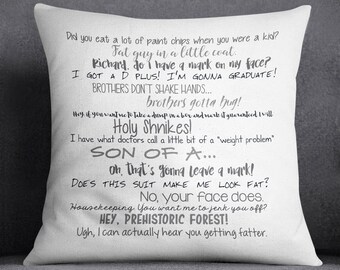 Did you eat a lot of paint chips when you were a kid?
Fat guy in a little coat
Richard, do I have a mark on my face?
I GOT A D PLUS! I'M GONNA GRADUATE!
BROTHERS DON'T SHAKE HANDS...
brothers gotta hug!
Hey, if you want me to take a dump in a box and mark it guaranteed I will
Holy Shnikes!
I have what doctors call a little bit of a "weight problem"
SON OF A...
Oh, that's gonna leave a mark!
DOES THIS SUIT MAKE ME LOOK FAT?
No, your face does.
Housekeeping You want me to jerk you off?
HEY, PREHISTORIC FOREST!
Ugh, I can actually hear you getting fatter.